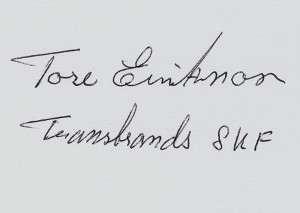 Tore Eriksson
Transbrands SKF